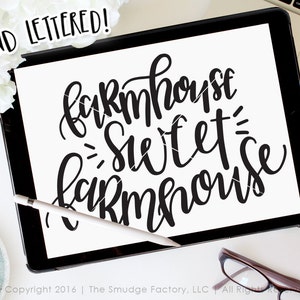 ND LETTERED!
farmhouse
sweet
farmhouse
Copyright 2016 | The Smudge Factory, LLC | All Rights